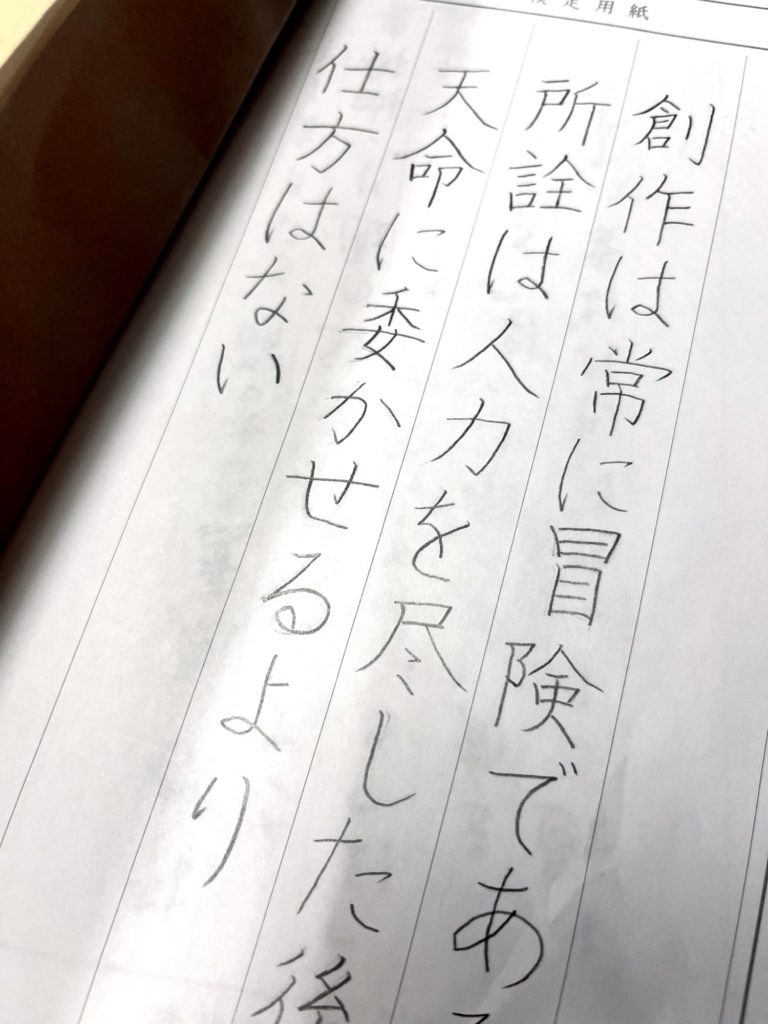 定用紙
創作は常に冒険である
所詮は人力を尽した後
天命に委かせるより
仕方はない